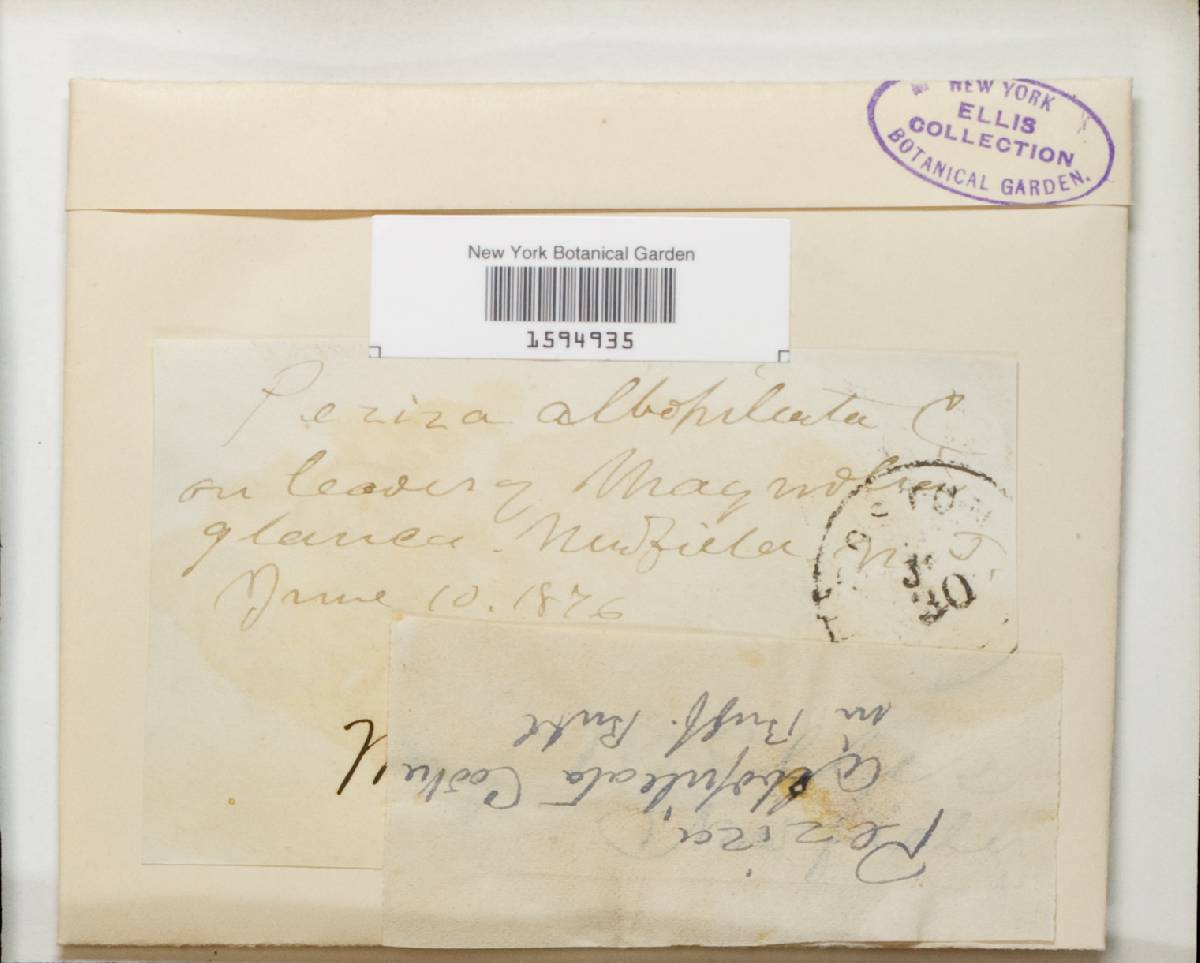 NEW YORK
ELLIS
COLLECTION
BOTANICAL GARDEN.
New York Botanical Garden
1594935
Peziza albopileata C
on leaves of Magnolia
glauca. Newfield N. J.
June 10. 1876
30
Peziza
albopileata Cooke
in Buff. Bull